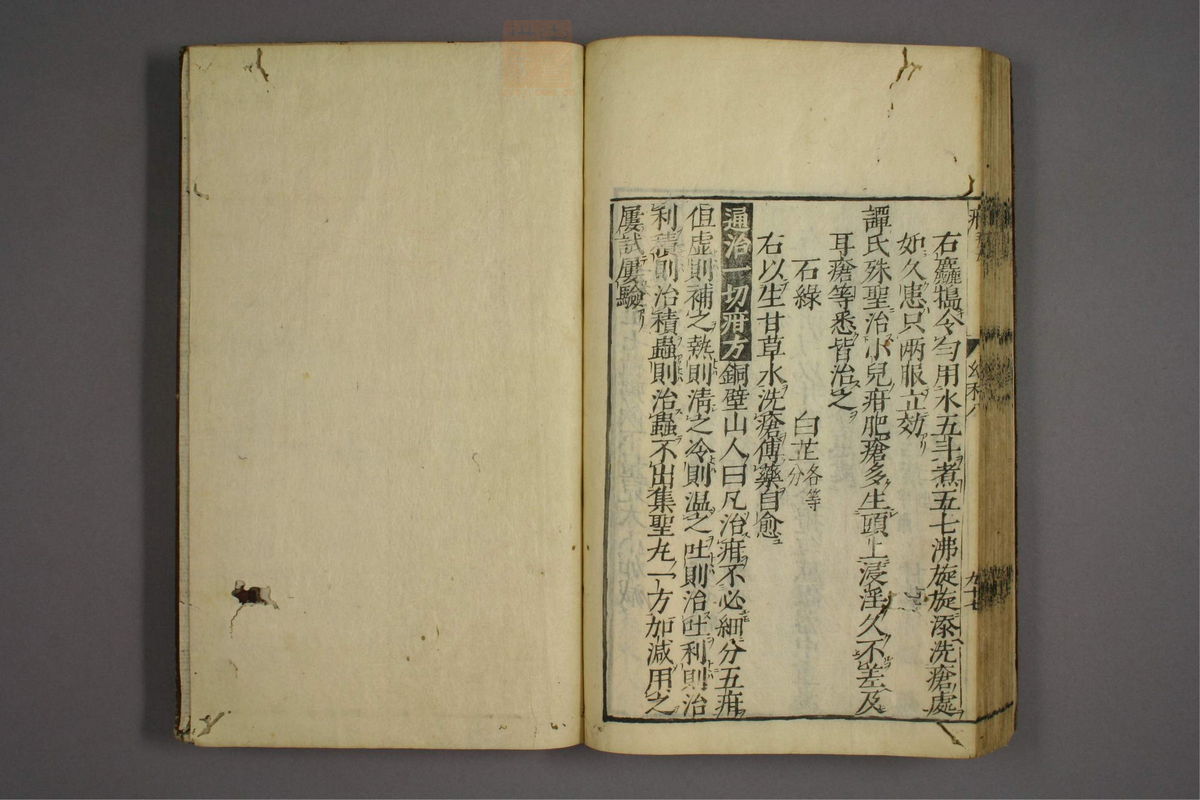 右麤搗令勻用水五斗煮五七沸旋旋添洗瘡處
如久患只兩眼立効
譚氏殊聖治小兒疳肥瘡多生頭上浸淫久不差及
耳瘡等悉皆治之
石綠 白芷各等分
右以生甘草水洗瘡傅藥自愈
通治一切疳方 銅壁山人曰凡治疳不必細分五疳
但虛則補之熱則清之冷則溫之吐則治吐利則治
利積則治積蟲則治蟲不出集聖丸一方加減用之
屢試屢驗
幼科八
九十七